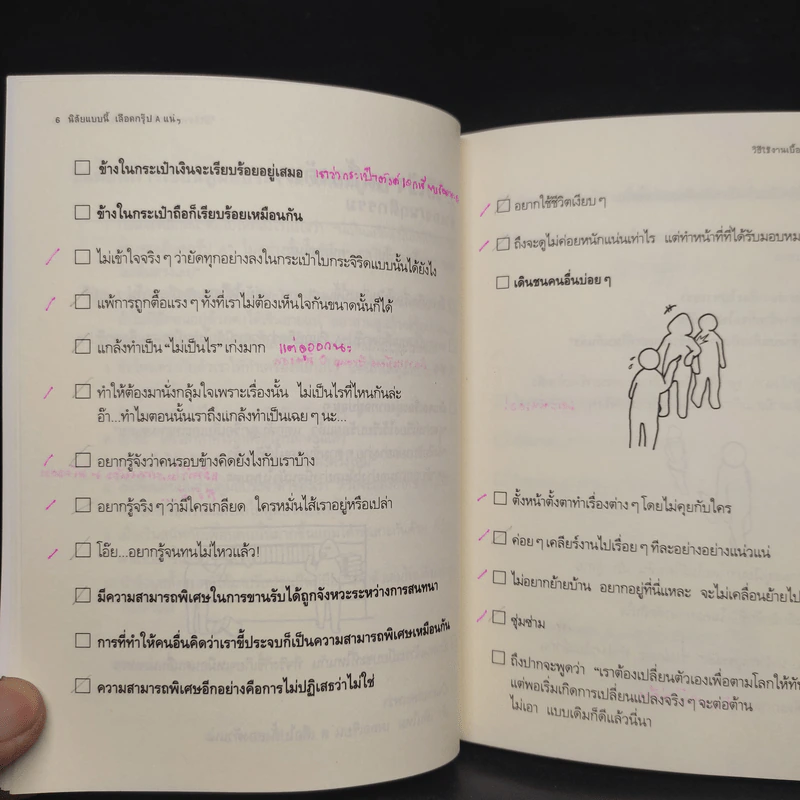 6 นิสัยแบบนี้ เลือดกรุ๊ป A แน่ๆ
ข้างในกระเป๋าเงินจะเรียบร้อยอยู่เสมอ
ข้างในกระเป๋าถือก็เรียบร้อยเหมือนกัน
ไม่เข้าใจจริง ๆ ว่ายัดทุกอย่างลงในกระเป๋าใบกระจิริดแบบนั้นได้ยังไง
แพ้การถูกตื๊อแรง ๆ ทั้งที่เราไม่ต้องเห็นใจกันขนาดนั้นก็ได้
แกล้งทำเป็น “ไม่เป็นไร” เก่งมาก
ทำให้ต้องมานั่งกลุ้มใจเพราะเรื่องนั้น ไม่เป็นไรที่ไหนกันล่ะ
อ๊า...ทำไมตอนนั้นเราถึงแกล้งทำเป็นเฉย ๆ นะ...
อยากรู้จังว่าคนรอบข้างคิดยังไงกับเราบ้าง
อยากรู้จริง ๆ ว่ามีใครเกลียด ใครหมั่นไส้เราอยู่หรือเปล่า
โอ๊ย...อยากรู้จนทนไม่ไหวแล้ว!
มีความสามารถพิเศษในการขานรับได้ถูกจังหวะระหว่างการสนทนา
การที่ทำให้คนอื่นคิดว่าเราขี้ประจบก็เป็นความสามารถพิเศษเหมือนกัน
ความสามารถพิเศษอีกอย่างคือการไม่ปฏิเสธว่าไม่ใช่
วิธีใช้งานเนื้อ
อยากใช้ชีวิตเงียบ ๆ
ถึงจะดูไม่ค่อยหนักแน่นเท่าไร แต่ทำหน้าที่ที่ได้รับมอบหม
เดินชนคนอื่นบ่อย ๆ
ตั้งหน้าตั้งตาทำเรื่องต่าง ๆ โดยไม่คุยกับใคร
ค่อย ๆ เคลียร์งานไปเรื่อย ๆ ทีละอย่างอย่างแน่วแน่
ไม่อยากย้ายบ้าน อยากอยู่ที่นี่แหละ จะไม่เคลื่อนย้ายไป
ซุ่มซ่าม
ถึงปากจะพูดว่า “เราต้องเปลี่ยนตัวเองเพื่อตามโลกให้ทัน
แต่พอเริ่มเกิดการเปลี่ยนแปลงจริง ๆ จะต่อต้าน
ไม่เอา แบบเดิมก็ดีแล้วนี่นา